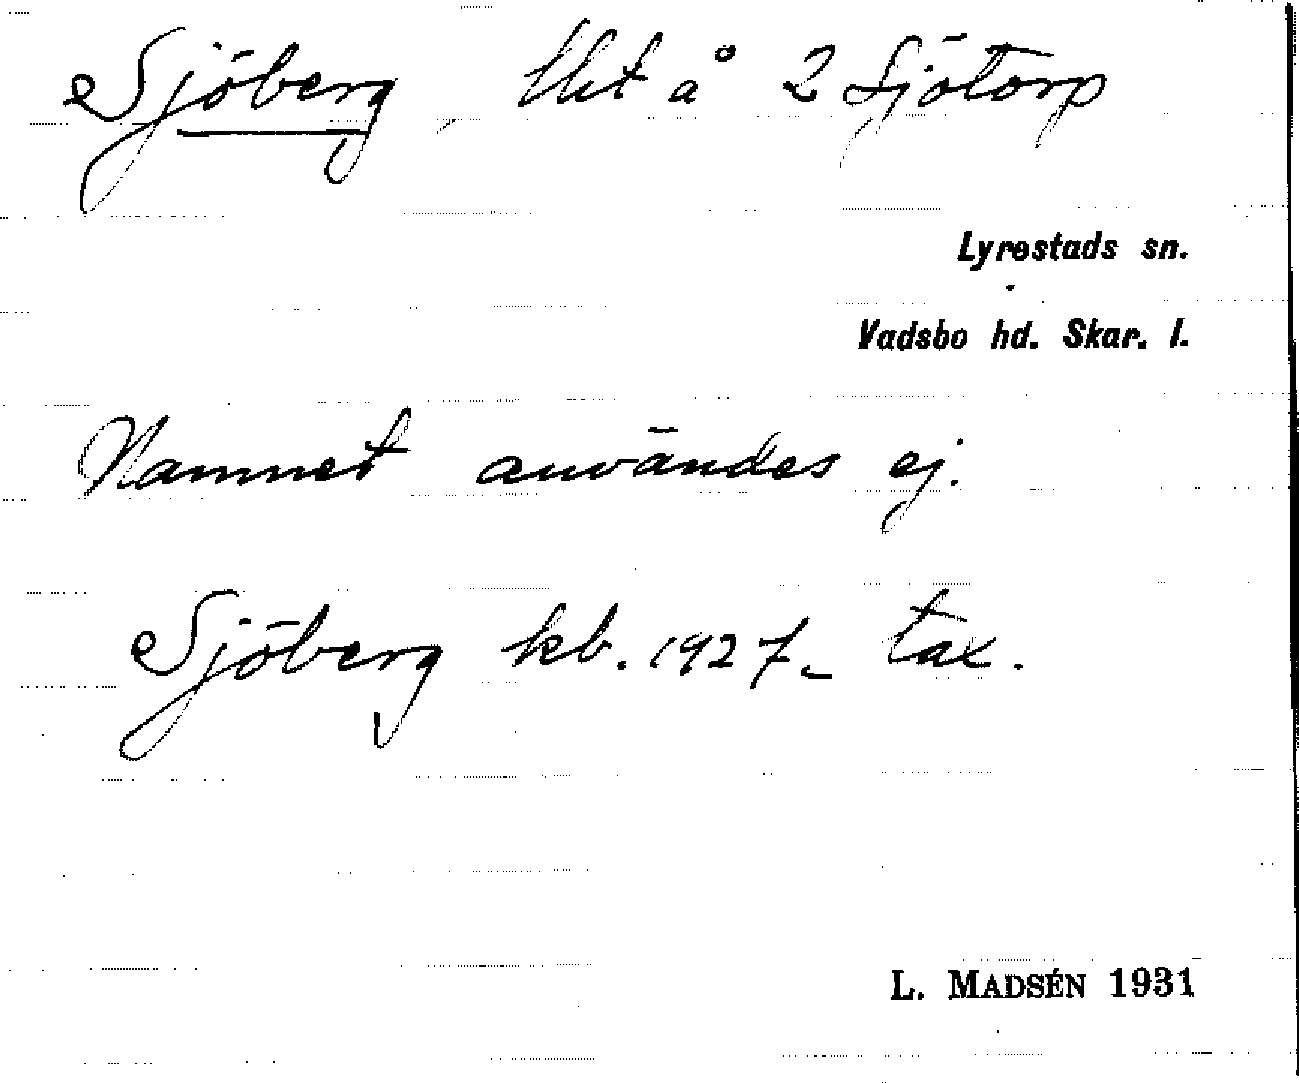 Sjöberg, lht å 2 Sjötorp
Lyrestads sn.
Vadsbo hd. Skar. l.
Namnet användes ej.
Sjöberg kb. 1927. tax.
L. MADSÉN 1931